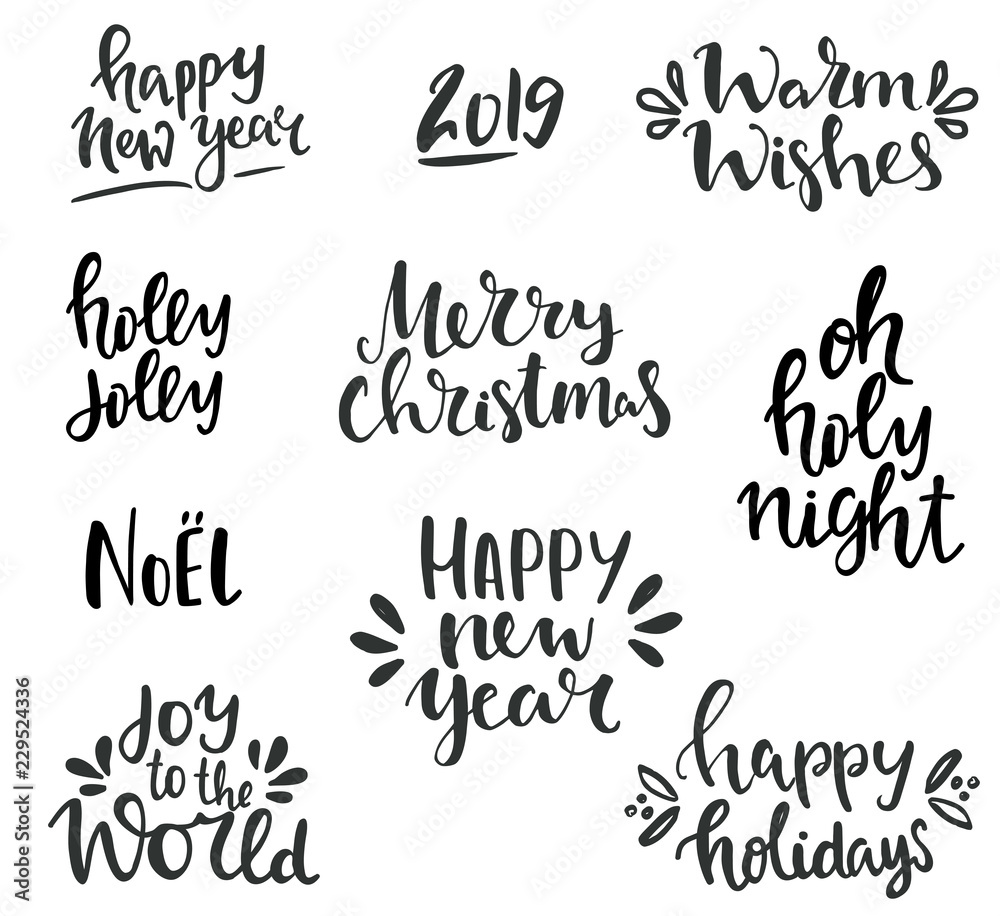 happy
new year
2019
Warm
Wishes
holly
jolly
Merry
christmas
oh
holy
night
NoËL
HAPPY
new
year
Joy
to the
World
happy
holidays
Adobe Stock | #229524336